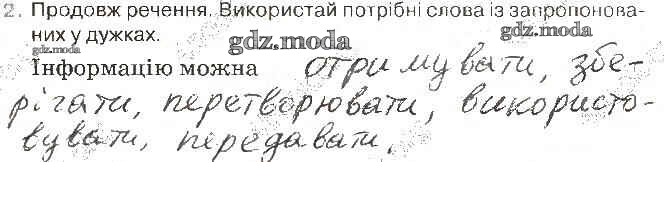 2. Продовж речення. Використай потрібні слова із запропонова-
них у дужках.
gdz.moda
gdz.moda
gdz.moda
Інформацію можна отримувати, збе-
рігати, перетворювати, використо-
вувати, передавати.